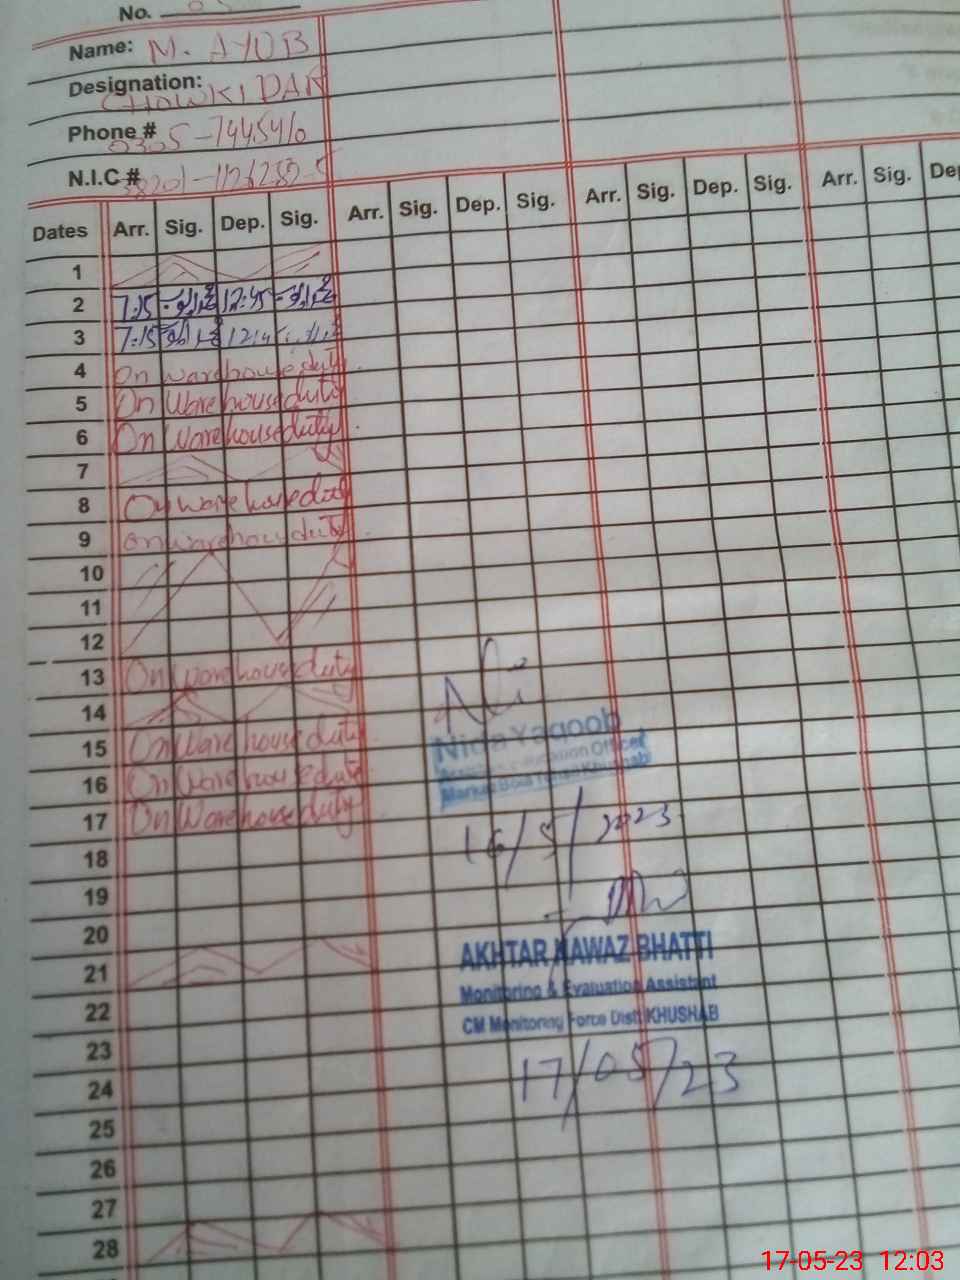 No. 03
Name: M. AYUB
Designation: CHOWKIDAR
Phone # 0305-7445410
N.I.C # 38201-1126282-5
Dates Arr. Sig. Dep. Sig. Arr. Sig. Dep. Sig. Arr. Sig. Dep. Sig. Arr. Sig. Dep
1
2 7:15 12:45
3 7:15
4 On warehouse duty.
5 On Warehouse duty
6 On Warehouse duty.
7
8 On warehouse duty
9 on warehouse duty.
10
11
12
13 On Warehouse duty
14
15 On Warehouse duty
16 On Warehouse duty
17 On Warehouse duty.
Nida Yaqoob
Assistant Education Officer
16/5/2023
18
19
20
AKHTAR NAWAZ BHATTI
21
Monitoring & Evaluation Assistant
22
CM Monitoring Force Distt: KHUSHAB
23
17/05/23
24
25
26
27
28
17-05-23 12:03